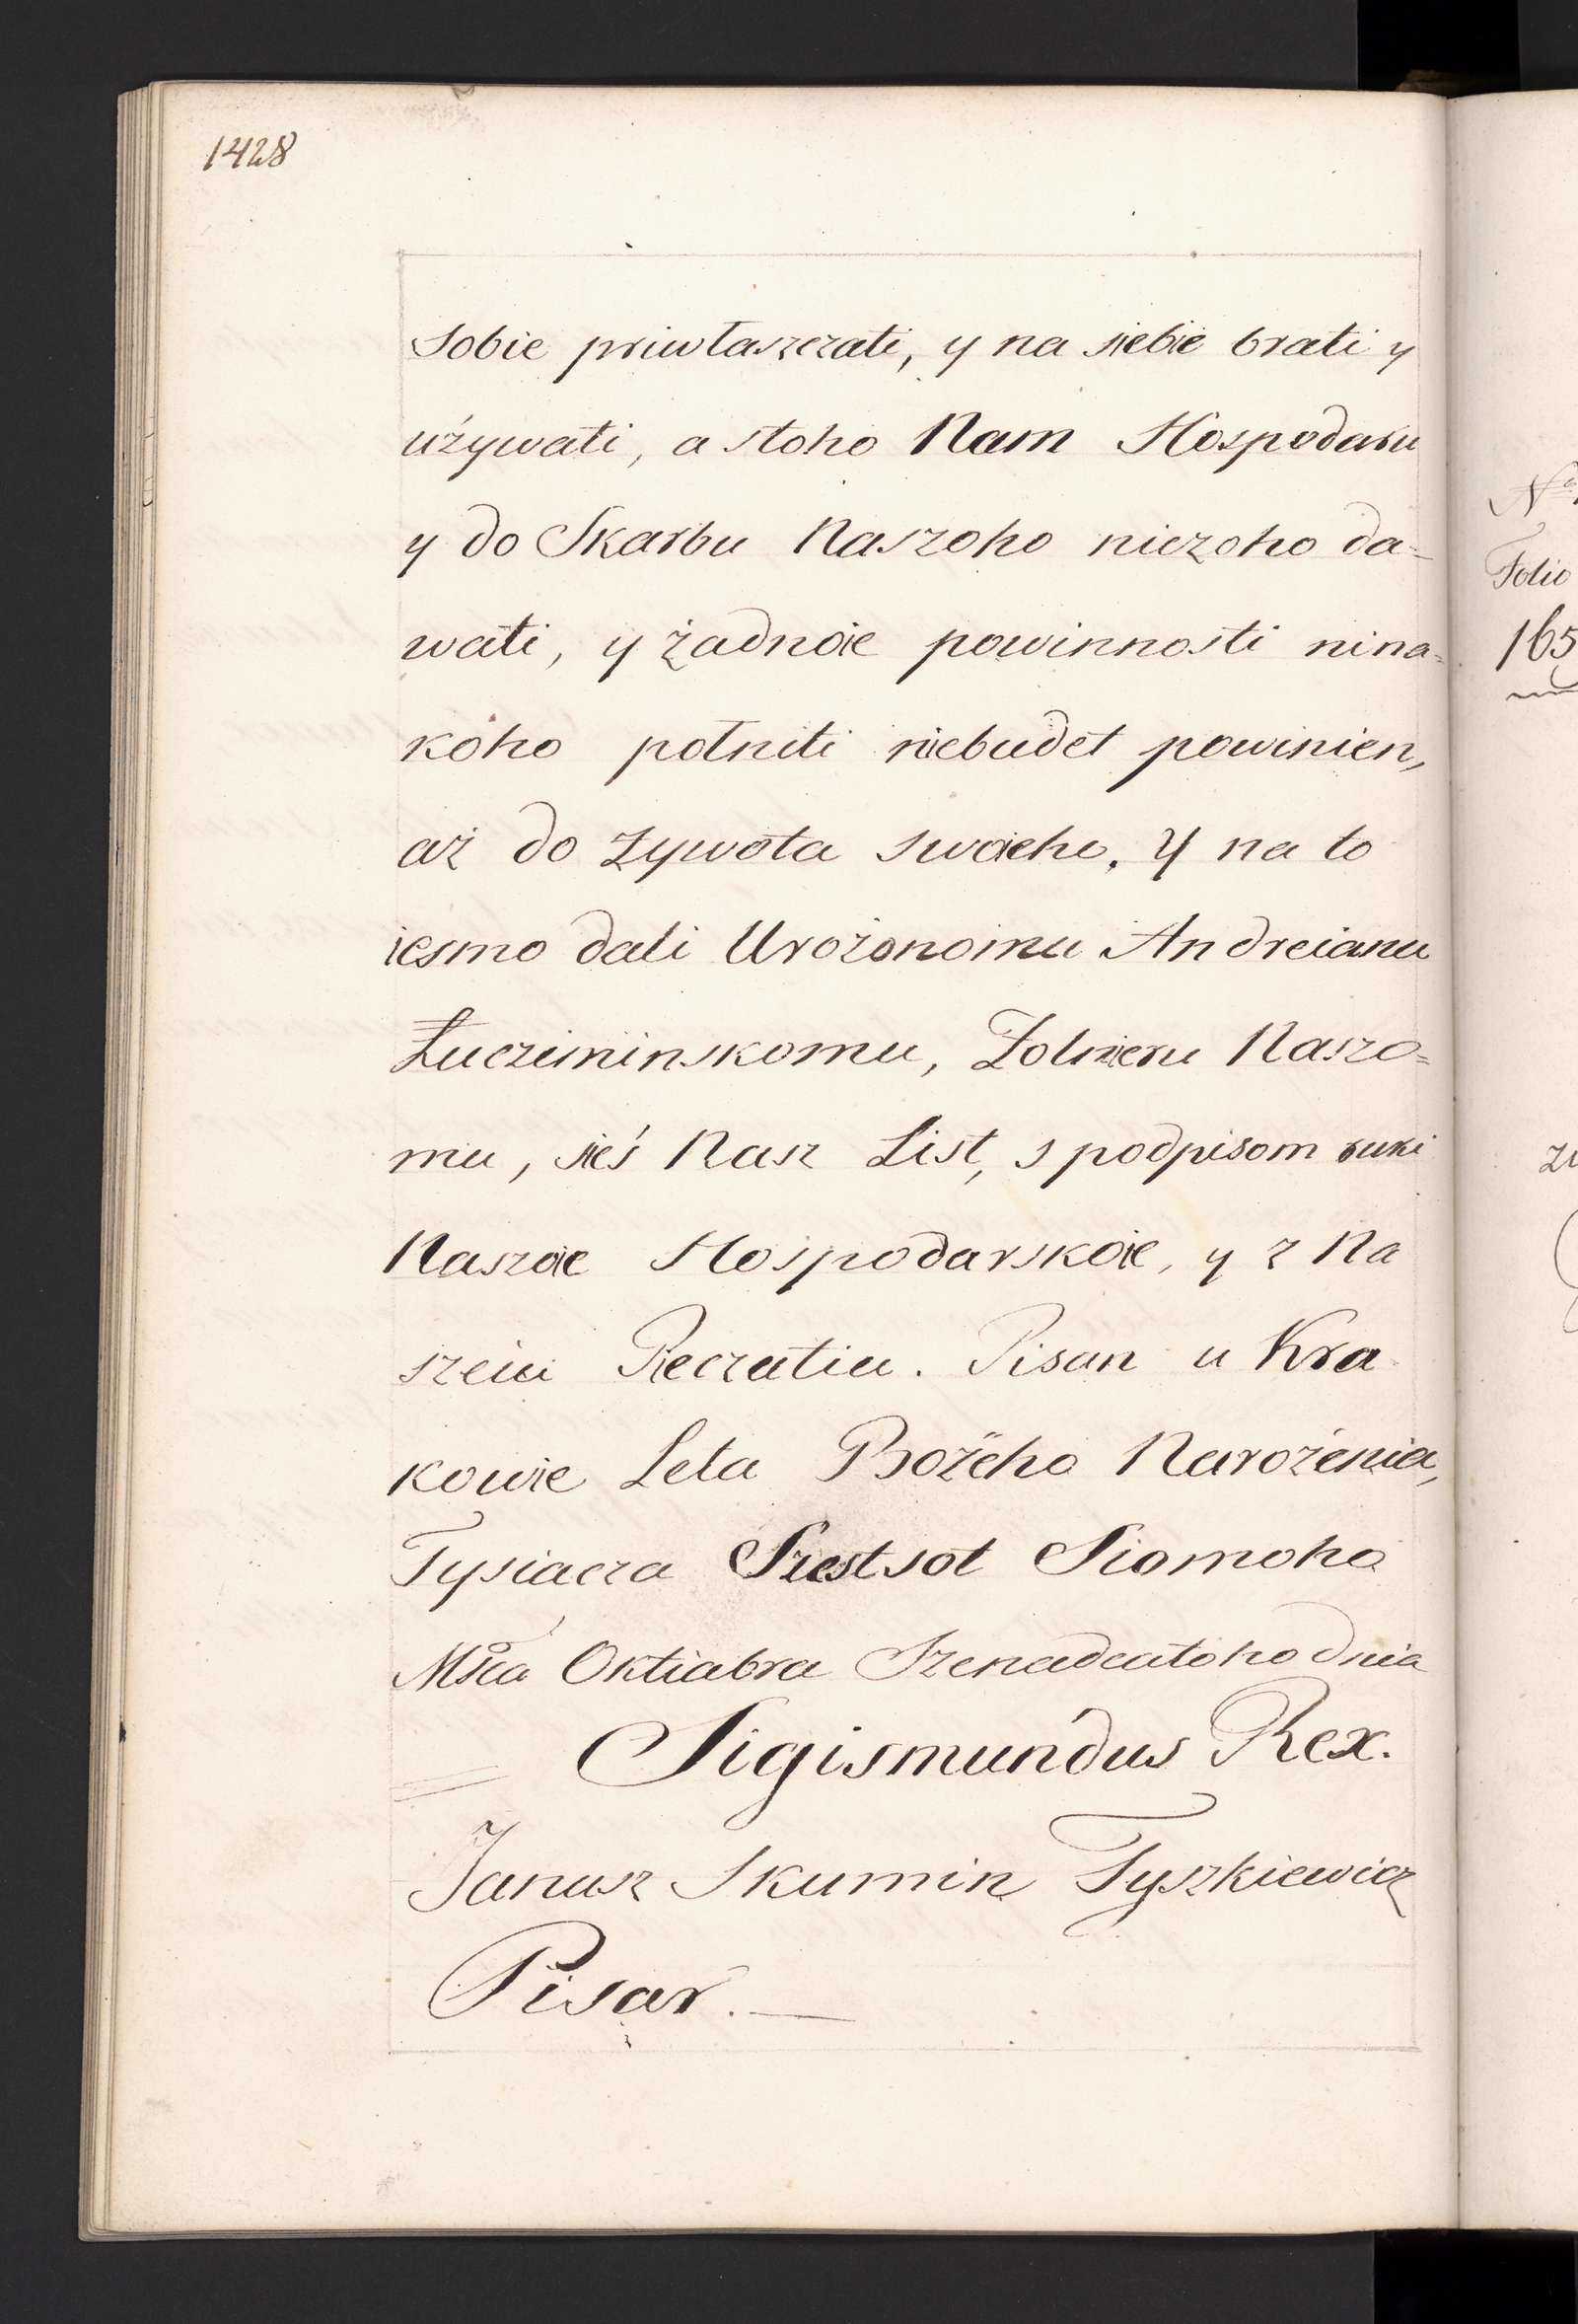 1428
sobie priwłaszczati, y na siebie brati y
używati, a stoho Nam Hospodaru
y do Skarbu Naszoho niczoho da=
wati, y żadnoie powinnosti nina=
koho połniti niebudet powinien,
aż do żywota swoieho. Y na to
iesmo dali Urożonomu Andreianu
Łucziminskomu, Żolnieru Naszo=
mu, sieś Nasz List, s podpisom ruki
Naszoie Hospodarskoie, y z Na
szeiu Pieczatiu. Pisan u Kra
kowie Leta Bożeho Narożenia,
Tysiacza Szestsot Siomoho
Msca Oktiabra Szenadcatoho dnia
Sigismundus Rex.
Janusz Skumin Tyszkiewicz
Pisar.
Folio
165